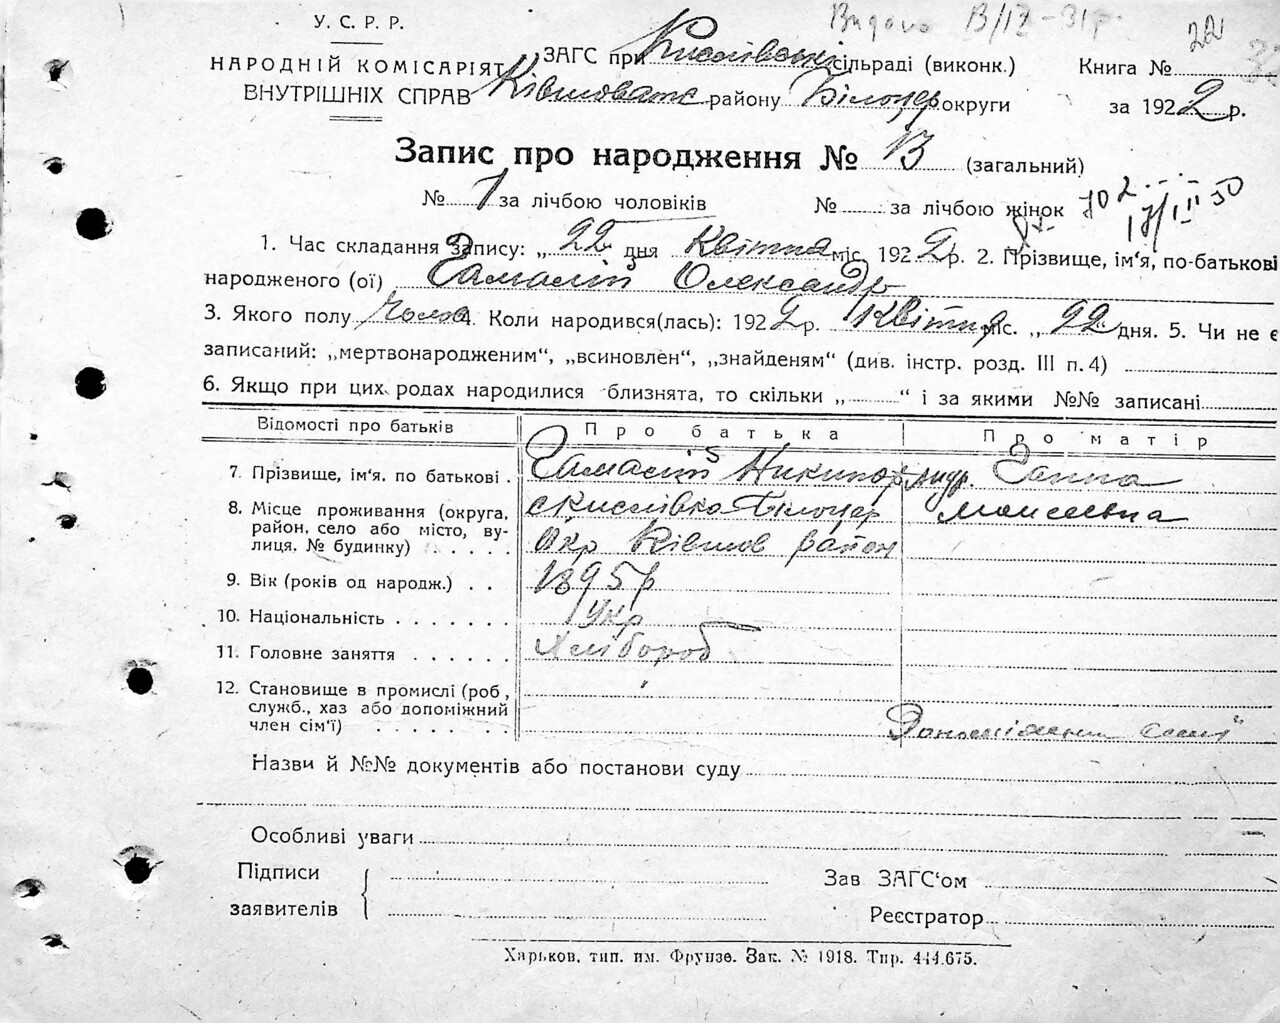 У. С. Р. Р.
Видано В/IX-31р. 22
НАРОДНІЙ КОМІСАРІЯТ ЗАГС при Кислівській сільраді (виконк.) Книга №
ВНУТРІШНІХ СПРАВ Ківшоватс. району Білоцер округи за 1922 р.
Запис про народження № 13 (загальний)
№ 7 за лічбою чоловіків № за лічбою жінок
1. Час складання запису: „22 дня Квітня міс. 1922 р. 2. Прізвище, ім'я, по-батькові
народженого (ої) Гамалій Олександр
3. Якого полу Чолов 4. Коли народився(лась): 1922 р. Квітня міс. „22 дня. 5. Чи не є
записаний: „мертвонародженим“, „всиновлен“, „знайденям“ (див. інстр. розд. III п. 4)
6. Якщо при цих родах народилися близнята, то скільки „ “ і за якими №№ записані
Відомості про батьків Про батька Про матір
7. Прізвище, ім'я, по батькові . Гамалій Никипор Ганна
8. Місце проживання (округа, с Кислівка Білоцер Мойсеївна
район, село або місто, ву-
лиця. № будинку) . . . . . Окр Ківшов район
9. Вік (років од народж.) . . 1895 р
10. Національність . . . . . . . Укр
11. Головне заняття . . . . . . Хлібороб
12. Становище в промислі (роб,
служб., хаз або допоміжний
член сім'ї) . . . . . . . .
Назви й №№ документів або постанови суду
Особливі уваги
Підписи Зав ЗАГС'ом
заявителів Реєстратор
Харьков, тип. им. Фрунзе. Зак. № 1918. Тир. 444.675.